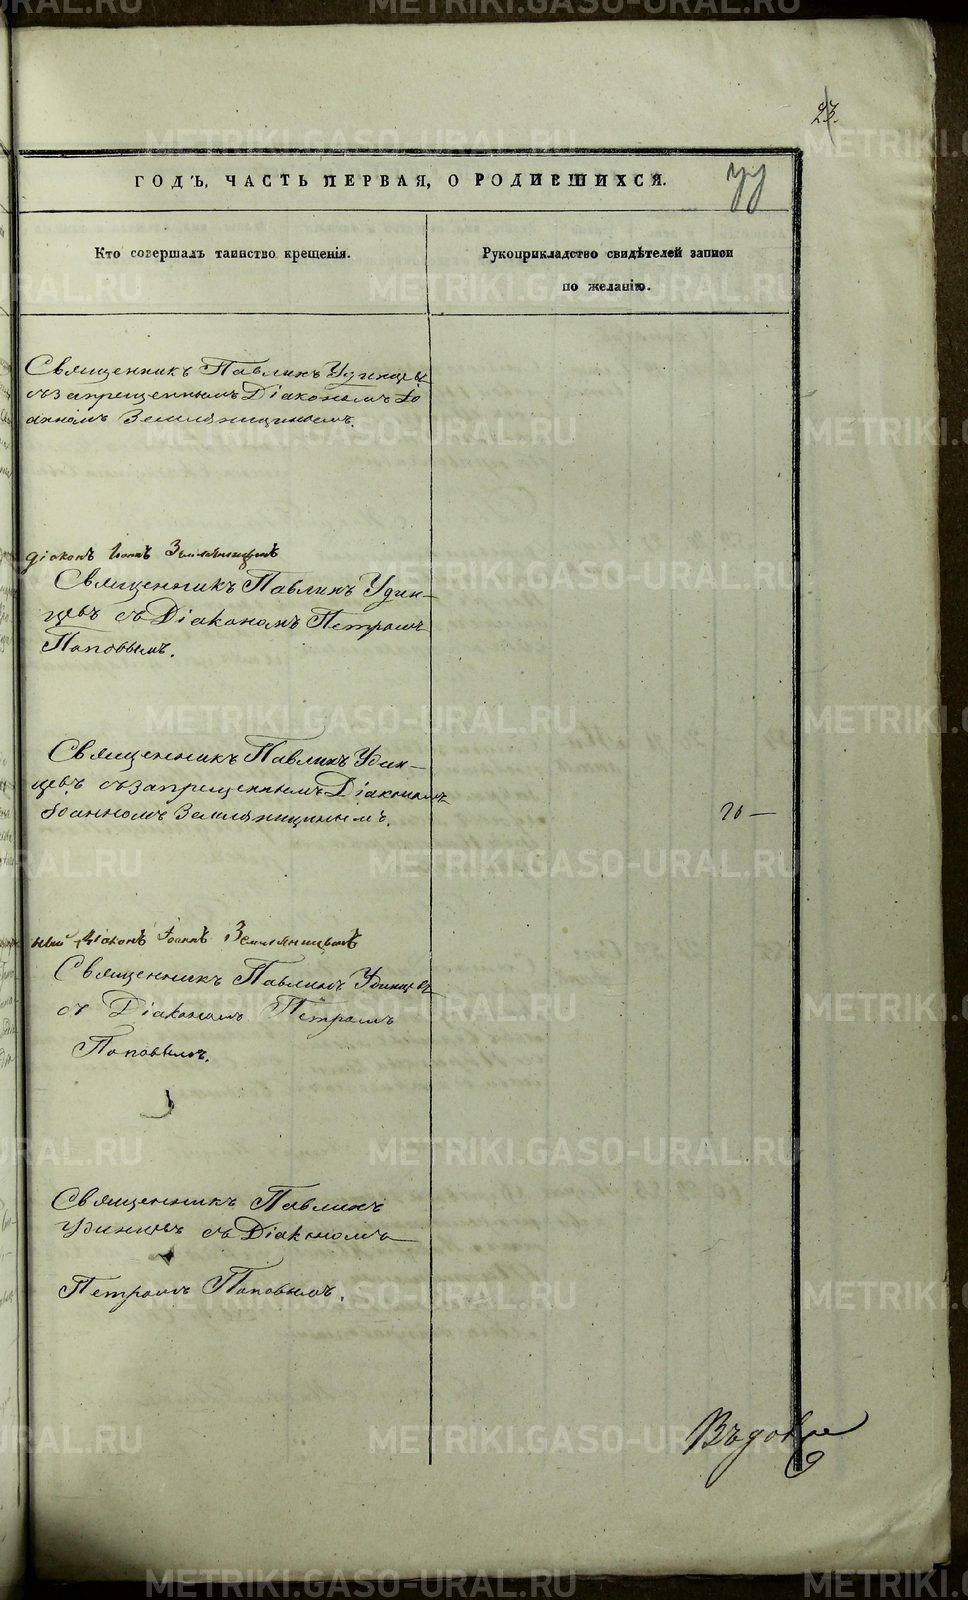 23.
ГОДЪ, ЧАСТЬ ПЕРВАЯ, О РОДИВШИХСЯ.
Кто совершалъ таинство крещенія.
Рукоприкладство свидѣтелей записи
по желанію.
Священникъ Павлинъ Удинцевъ
съ запрещеннымъ Діакономъ Іо
анномъ Земляницинымъ.
діаконъ Іоаннъ Земляницынъ
Священникъ Павлинъ Удин-
цевъ съ Діакономъ Петромъ
Поповымъ.
Священникъ Павлинъ Удин-
цевъ съ запрещеннымъ Діакономъ
Іоанномъ Земляницинымъ.
20 —
ный Діаконъ Іоаннъ Земляницынъ
Священникъ Павлинъ Удинцевъ
съ Діакономъ Петромъ
Поповымъ.
Священникъ Павлинъ
Удинцевъ съ Діакономъ
Петромъ Поповымъ.
METRIKI.GASO-URAL.RU